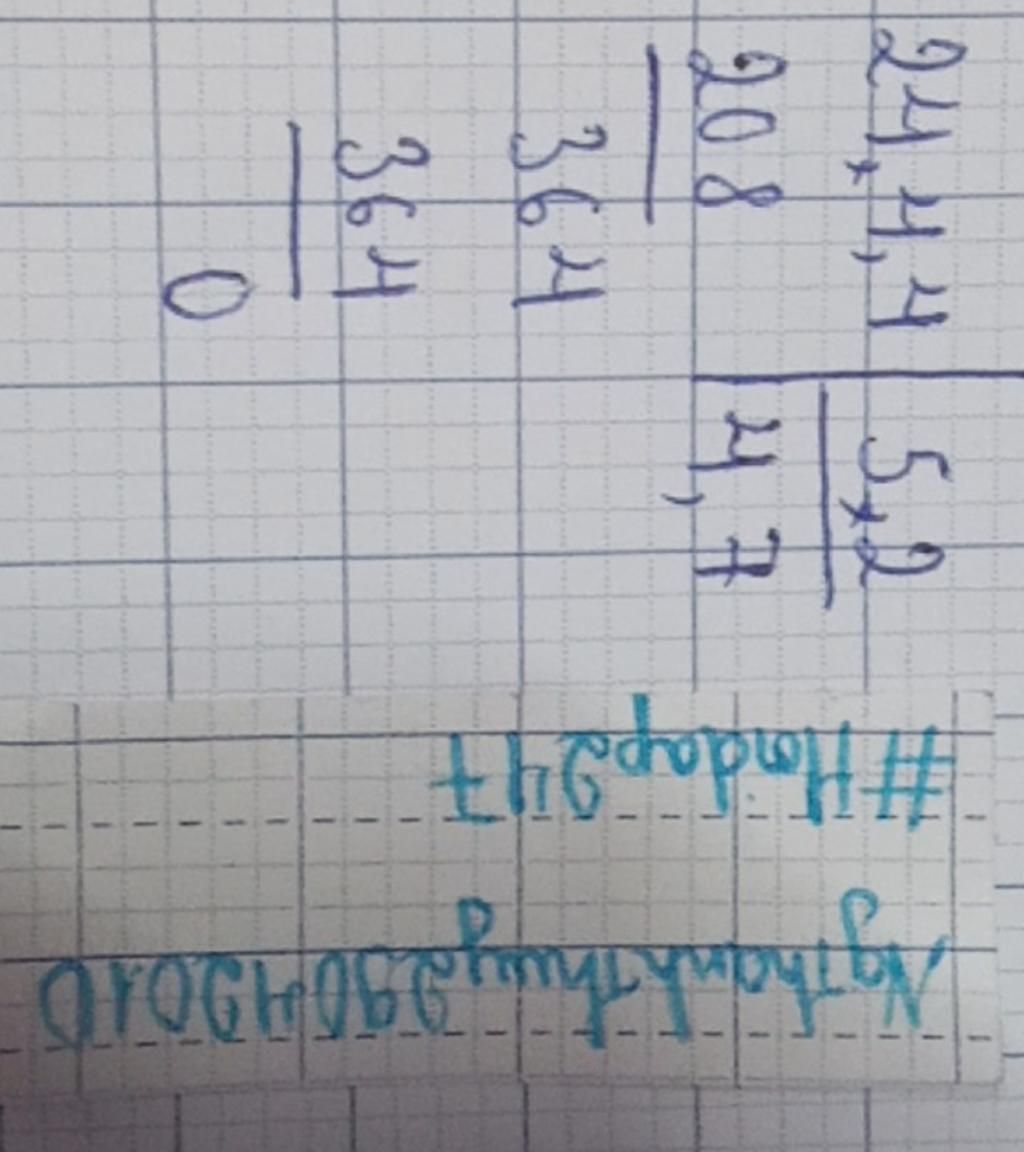 24,4,4 5,2
208 4,7
364
364
0
#Hoidap247
NgThanhThuy29042010